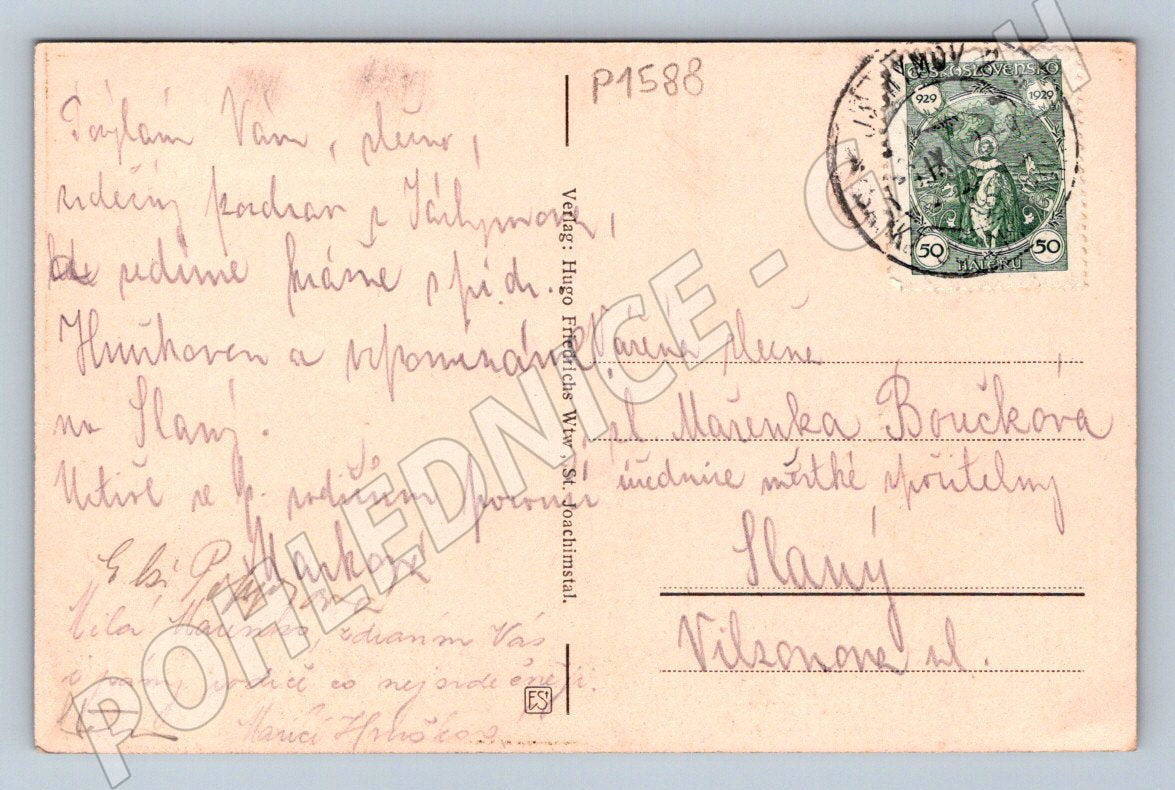 P1588
Vám, slečno,
srdečný pozdrav z Jáchymova,
kde sedíme právě s pí. dr.
a vzpomínáme
na Slaný.
Uctivě se p. rodičům poroučí
Markova
Elsi
Milá Mařenko, zdravím Vás
a paní rodiče co nejsrdečněji.
Verlag: Hugo Friedrichs Wtw., St. Joachimstal.
ES
ČESKOSLOVENSKO
929 1929
50 HALÉŘŮ 50
Vážená slečna
sl. Mařenka Boučková
úřednice městské spořitelny
Slaný
Vilsonova ul.
POHLEDNICE -